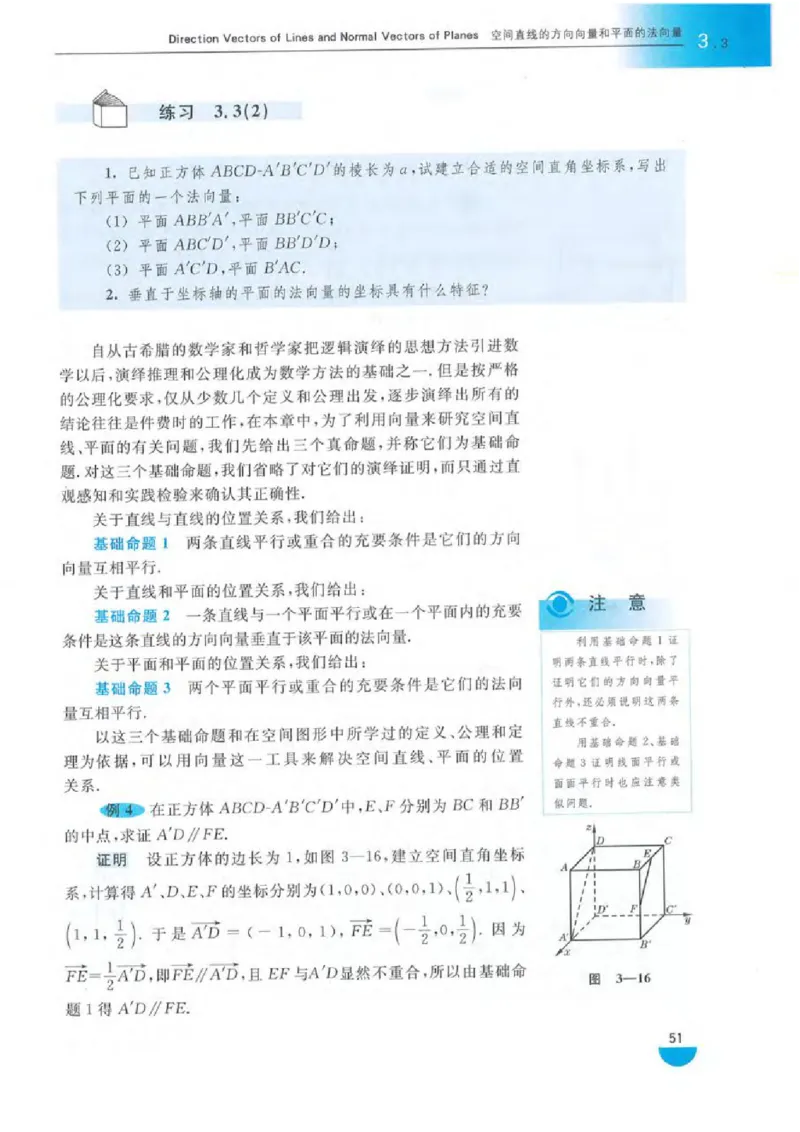 Direction Vectors of Lines and Normal Vectors of Planes 空间直线的方向向量和平面的法向量 3.3
练习 3.3(2)
1. 已知正方体 ABCD-A′B′C′D′的棱长为 a,试建立合适的空间直角坐标系,写出
下列平面的一个法向量:
(1) 平面 ABB′A′,平面 BB′C′C;
(2) 平面 ABC′D′,平面 BB′D′D;
(3) 平面 A′C′D,平面 B′AC.
2. 垂直于坐标轴的平面的法向量的坐标具有什么特征?
自从古希腊的数学家和哲学家把逻辑演绎的思想方法引进数
学以后,演绎推理和公理化成为数学方法的基础之一.但是按严格
的公理化要求,仅从少数几个定义和公理出发,逐步演绎出所有的
结论往往是件费时的工作,在本章中,为了利用向量来研究空间直
线、平面的有关问题,我们先给出三个真命题,并称它们为基础命
题.对这三个基础命题,我们省略了对它们的演绎证明,而只通过直
观感知和实践检验来确认其正确性.
关于直线与直线的位置关系,我们给出:
基础命题 1 两条直线平行或重合的充要条件是它们的方向
向量互相平行.
关于直线和平面的位置关系,我们给出:
基础命题 2 一条直线与一个平面平行或在一个平面内的充要
条件是这条直线的方向向量垂直于该平面的法向量.
关于平面和平面的位置关系,我们给出:
基础命题 3 两个平面平行或重合的充要条件是它们的法向
量互相平行.
以这三个基础命题和在空间图形中所学过的定义、公理和定
理为依据,可以用向量这一工具来解决空间直线、平面的位置
关系.
例 4 在正方体 ABCD-A′B′C′D′中,E、F 分别为 BC 和 BB′
的中点,求证 A′D∥FE.
证明 设正方体的边长为 1,如图 3—16,建立空间直角坐标
系,计算得 A′、D、E、F 的坐标分别为(1,0,0)、(0,0,1)、(1/2,1,1)、
(1,1,1/2). 于是 A′D→=(-1,0,1), FE→=(-1/2,0,1/2). 因为
FE→=1/2 A′D→,即FE→∥A′D→,且 EF 与A′D显然不重合,所以由基础命
题 1 得 A′D∥FE.
注 意
利用基础命题 1 证
明两条直线平行时,除了
证明它们的方向向量平
行外,还必须说明这两条
直线不重合.
用基础命题 2、基础
命题 3 证明线面平行或
面面平行时也应注意类
似问题.
z
D
C
E
A
B
F
D′
C′
y
A′
B′
x
图 3—16
51